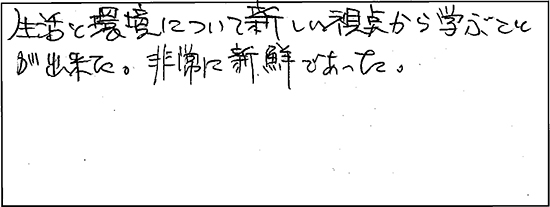 生活と環境について新しい視点から学ぶこと
が出来た。非常に新鮮であった。